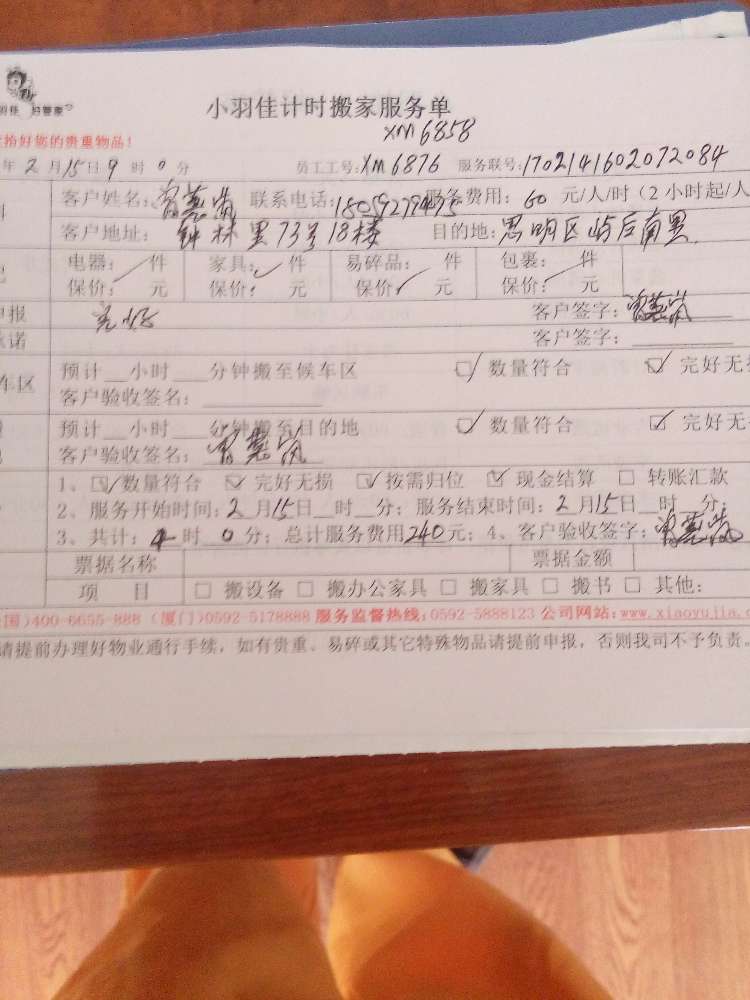 好管家
小羽佳计时搬家服务单
XM6858
拾好您的贵重物品!
年2月15日9时0分 员工工号:XM6876 服务联号:1702141602072084
客户姓名: 联系电话: 服务费用:60元/人/时(2小时起/人
客户地址:钟林里73号18楼 目的地:思明区屿后南里
电器:✓件 家具:✓件 易碎品: 件 包裹: 件
保价: 元 保价: 元 保价✓ 元 保价: 元
申报 完好 客户签字:
承诺 客户签字:
车区 预计__小时__分钟搬至候车区 ☑数量符合 ☑完好无损
客户验收签名:
预计__小时__分钟搬至目的地 ☑数量符合 ☑完好无
客户验收签名:
1、☑数量符合 ☑完好无损 ☑按需归位 ☑现金结算 □转账汇款
2、服务开始时间:2月15日__时__分;服务结束时间:2月15日__时__分;
3、共计:4时0分;总计服务费用240元;4、客户验收签字:
票据名称 票据金额
项 目 □搬设备 □搬办公家具 □搬家具 □搬书 □其他:
国)400-6655-888 (厦门)0592-5178888 服务监督热线:0592-5888123 公司网站:www.xiaoyujia.c
请提前办理好物业通行手续,如有贵重、易碎或其它特殊物品请提前申报,否则我司不予负责。